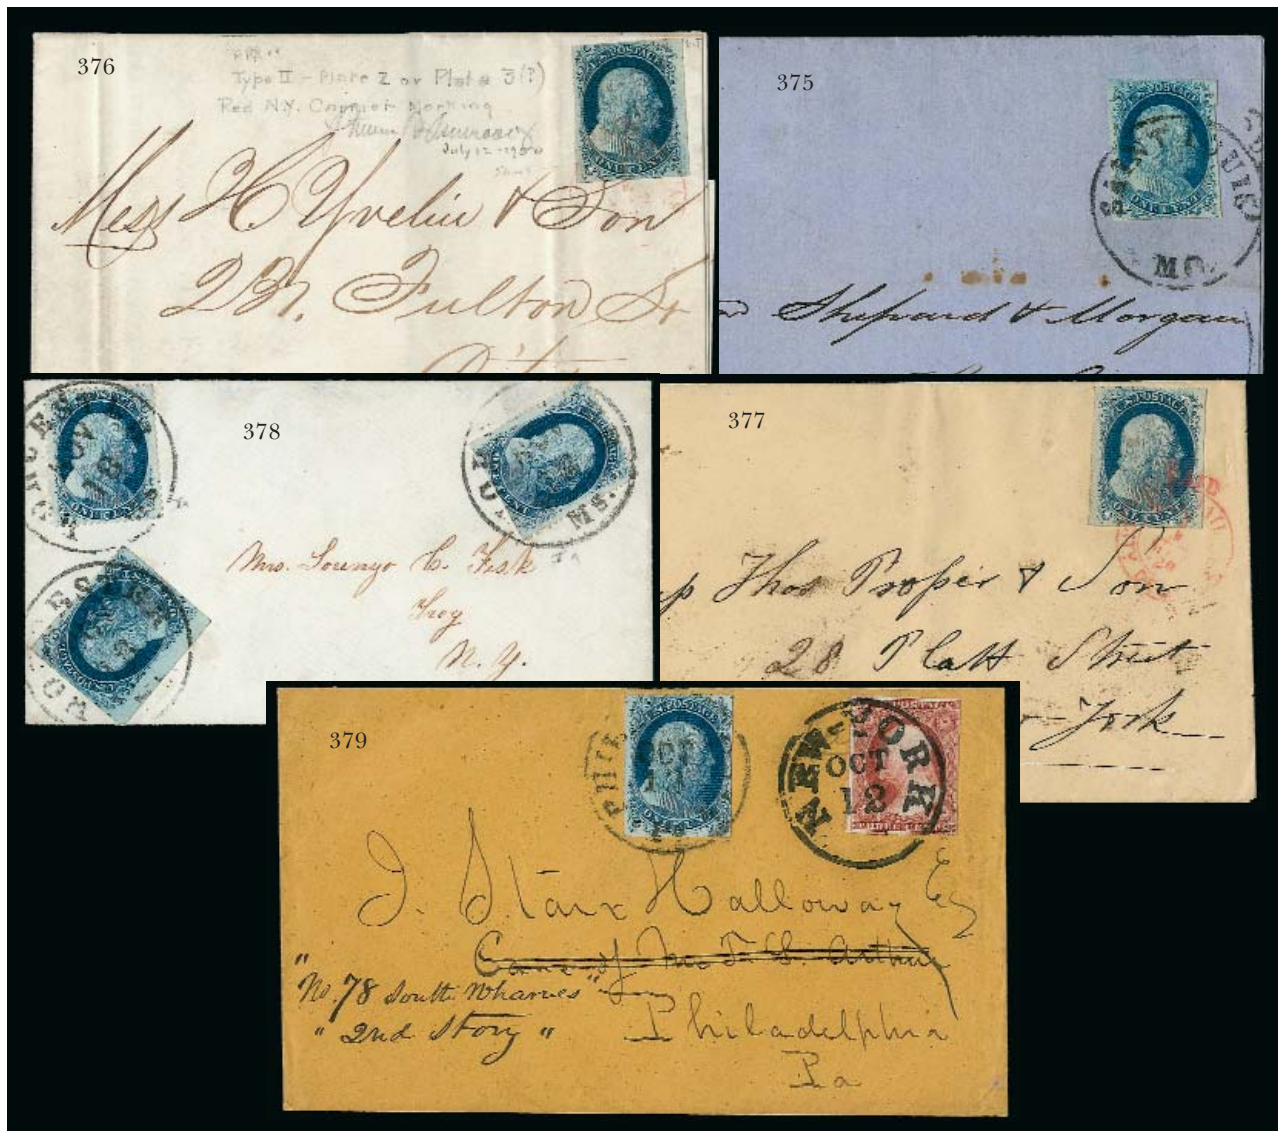 376
Type II - Plate 2 or Plate 3(?)
Red N.Y. Carrier Marking
July 12 1950
Mess H Yvelin & Son
231. Fulton St
375
SAINT LOUIS
MO.
Shepard & Morgan
378
NOV
18
MS.
Mrs. Lorenzo C. Fisk
Troy
N. Y.
377
U.S. POSTAGE
ONE CENT
Thos Prosser & Son
28 Platt Street
York
379
OCT
NEW-YORK
OCT
12
J. Starr Halloway Esq
Care of
"No. 78 South Wharves"
" 2nd Story "
Philadelphia
Pa